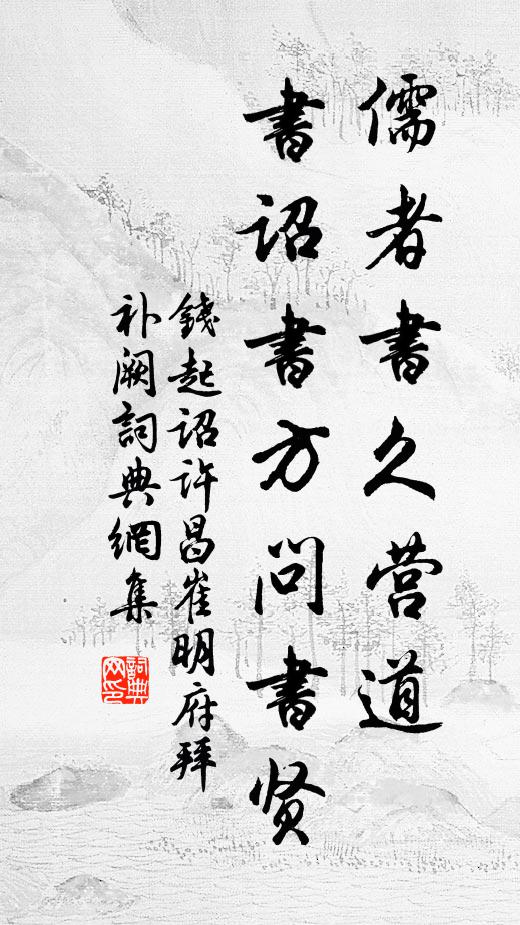 儒者書久营道
書诏書方问書贤
錢起诏许昌崔明府拜
补阙詞典網集
詞典網印